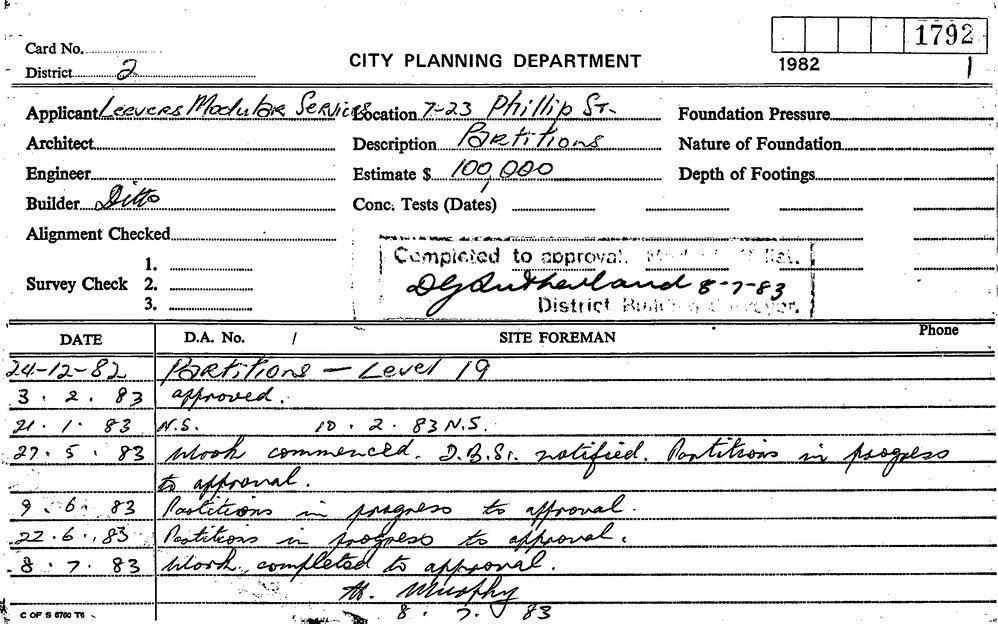 1792
Card No.
CITY PLANNING DEPARTMENT
District 2
1982 1
Applicant Leevers Modular Services Location 7-23 Phillip St. Foundation Pressure
Architect Description Partitions Nature of Foundation
Engineer Estimate $ 100,000 Depth of Footings
Builder Ditto Conc. Tests (Dates)
Alignment Checked
Completed to approval. list.
Survey Check 1.
2.
3.
DGSutherland 8-7-83
District Building Surveyor.
DATE D.A. No. / SITE FOREMAN Phone
24-12-82 Partitions — Level 19
3.2.83 approved.
21.1.83 N.S. 10.2.83 N.S.
27.5.83 Work commenced. D.B.Sr. notified. Partitions in progress
to approval.
9.6.83 Partitions in progress to approval.
22.6.83 Partitions in progress to approval.
8.7.83 Work completed to approval.
Murphy
8.7.83
C OF S 6760 T6